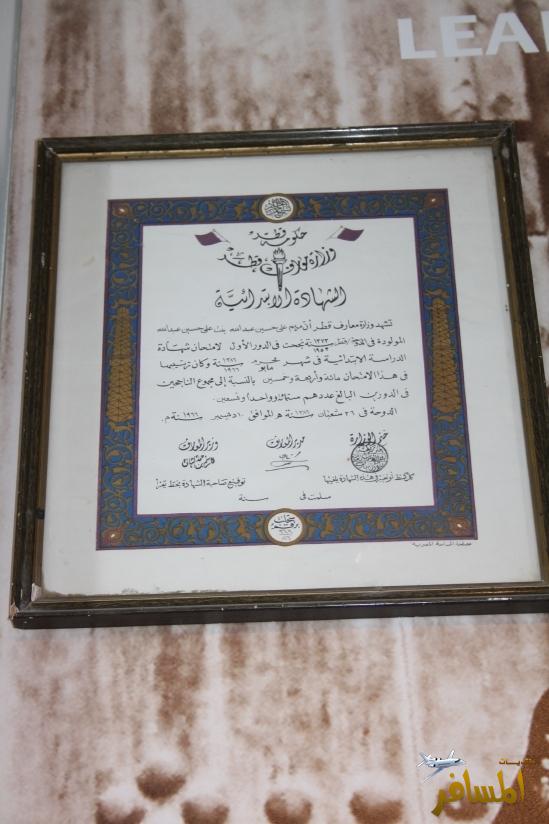 LEA
حكومة قطر
وزارة معارف قطر
الشهادة الابتدائية
تشهد وزارة معارف قطر أن مريم علي حسين عبدالله بنت علي حسين عبدالله
المولودة في قطر ١٣٧٣ ١٩٥٣ نجحت في الدور الأول لامتحان شهادة
الدراسة الابتدائية في شهر محرم مايو سنة ١٣٨٦ ١٩٦٦ وكان ترتيبها
في هذا الامتحان مائة وأربعة وخمسين بالنسبة إلى مجموع الناجحين
في الدورين البالغ عددهم ستمائة وواحدا وتسعين.
الدوحة في ٢٦ شعبان سنة ١٣٨٦ هـ الموافق ١٠ ديسمبر سنة ١٩٦٦ م.
ختم الوزارة
مدير المعارف
وزير المعارف
كل كشط أو تغيير في هذه الشهادة يلغيها
توقيع صاحبة الشهادة بخط يدها
سلمت في سنة
سجلت برقم
المسافر